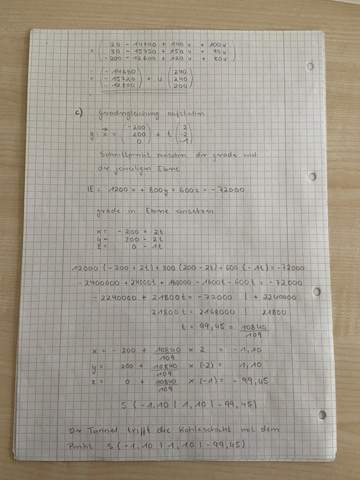 = ( 20 - 14700 + 140v + 100v
30 - 15750 + 150v + 90v
-200 - 12600 + 120v + 80v )
= ( -14680
-15720
-12800 ) + v ( 240
240
200 )
c) Geradengleichung aufstellen
g: x = ( -200
200
0 ) + t ( 2
-2
-1 )
Schnittpunkt zwischen der grade und
der jeweiligen Ebene
E = 1200x + 800y + 600z = -72000
grade in Ebene einsetzen
x = -200 + 2t
y = 200 - 2t
z = 0 - 1t
12000 (-200 + 2t) + 800 (200 - 2t) + 600 (-1t) = -72000
-2400000 + 24000t + 160000 - 1600t - 600t = -72000
-2240000 + 21800t = -72000 | + 2240000
21800t = 2168000 | 21800
t = 99,45 = 10840/109
x = -200 + 10840/109 × 2 = -1,10
y = 200 + 10840/109 × (-2) = 1,10
z = 0 + 10840/109 × (-1) = -99,45
S (-1,10 | 1,10 | -99,45)
Der Tunnel trifft die Kohleschicht mit dem
Punkt S (-1,10 | 1,10 | -99,45)